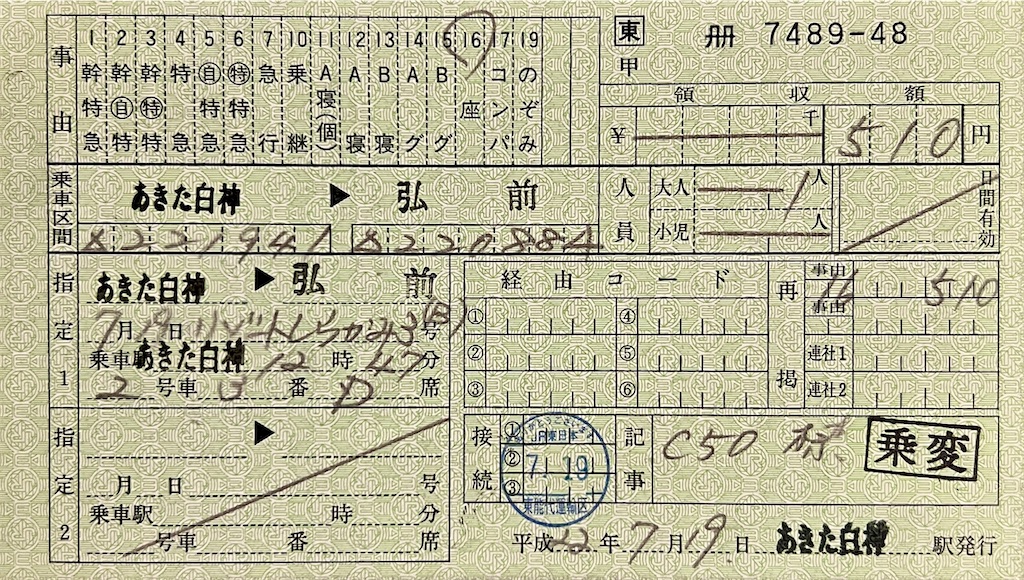 東 冊 7489-48
甲
事由
1 2 3 4 5 6 7 10 11 12 13 14 15 16 17 19
幹特急
幹自特
幹特特
特急
自特急
特特急
急行
乗継
A寝(個)
A寝
B寝
Aグ
Bグ
座
コンパ
のぞみ
領収額
¥ 千 510 円
乗車区間 あきた白神 ▶ 弘前
人員 大人 1人
小児 人
日間有効
指定1 あきた白神 ▶ 弘前
7月19日 リゾートしらかみ3(B)号
乗車駅 あきた白神 12時47分
2号車 3番D席
経由コード
① ④
② ⑤
③ ⑥
再掲
事由 16 510
事由
連社1
連社2
指定2 ▶
月 日 号
乗車駅 時 分
号車 番 席
接続 ① ② ③
ありがとうございます
JR東日本
7.19
東能代運輸区
記事 C50
乗変
平成22年7月19日 あきた白神 駅発行